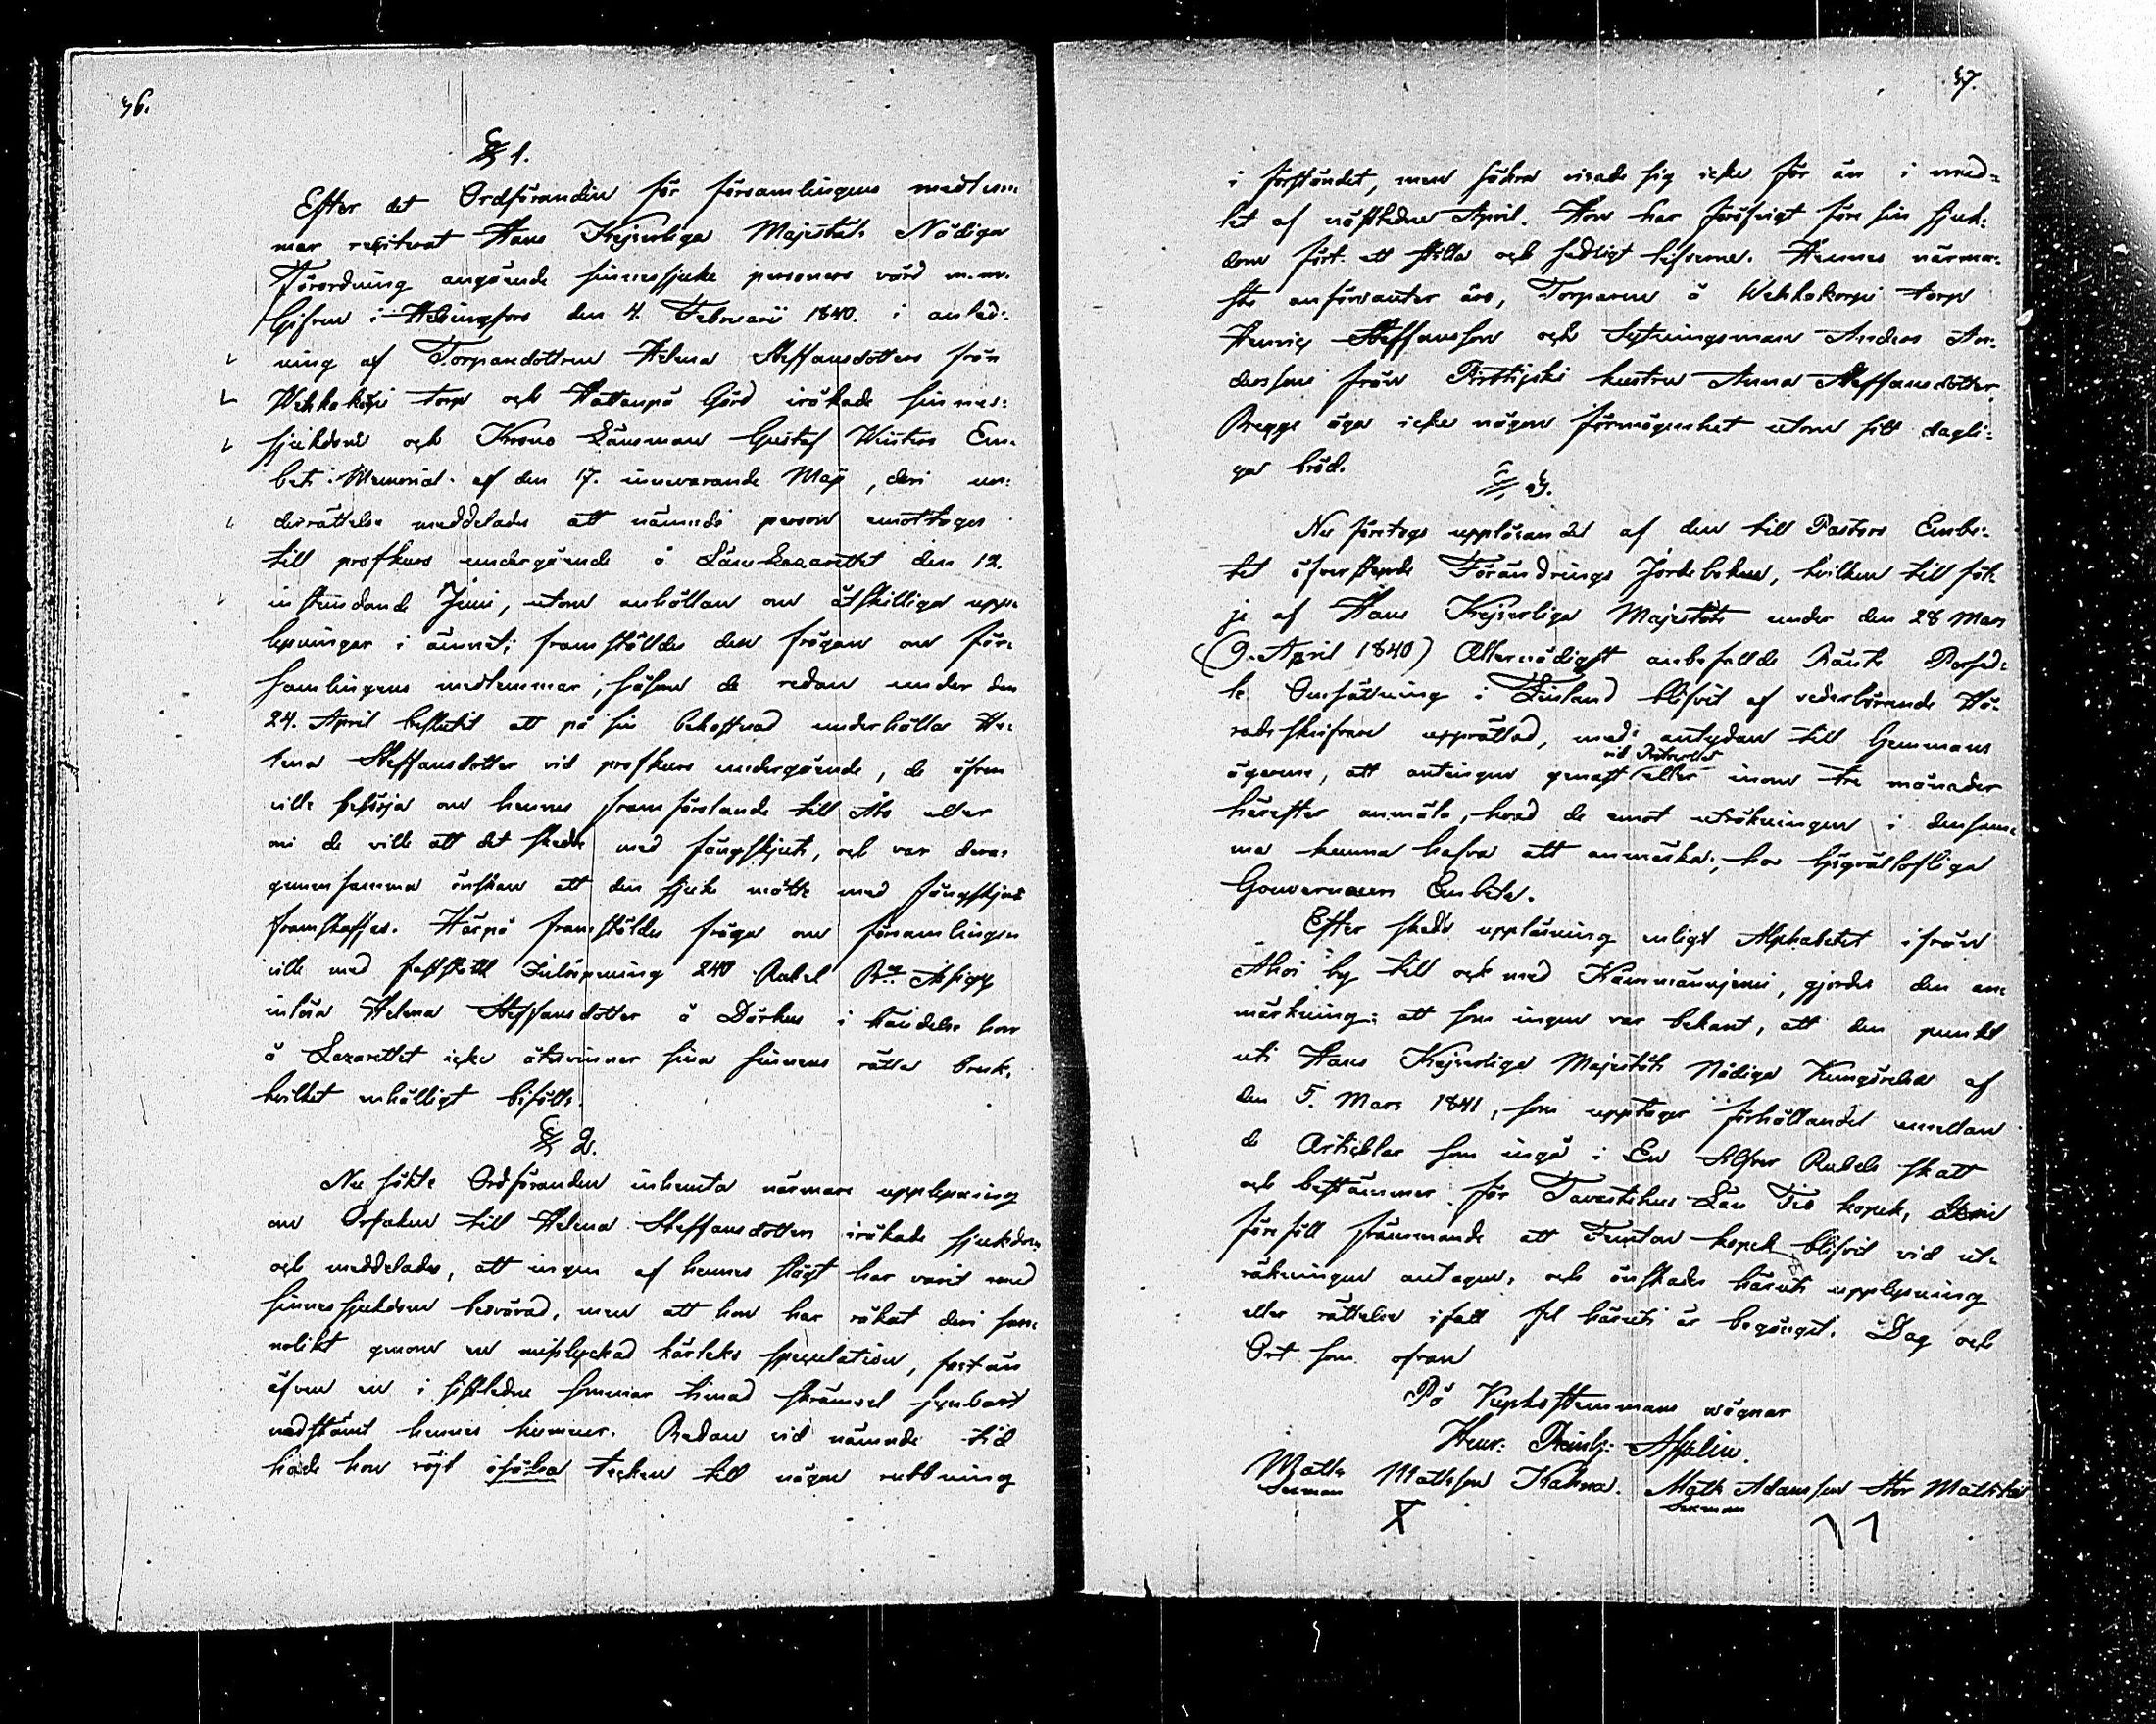 36.
§ 1.
Efter det Ordföranden för församlingens medlem-
mar reciterat Hans Kejserliga Majestäts Nådiga
Förordning angående sinnessjuke personers vård m.m.
Gifven i Helsingfors den 4. Februarii 1840. i anled-
ning af Torparedottren Helena Steffansdotters från
torp och Hattanpä Gård iråkade sinnes-
sjukdom och Krono Länsman Gustaf Em-
bets Memorial af den 17. innevarande Maji, deri un-
derrättelse meddelades att nämnde person emottages
till profkurs undergående å Läns Lazarettet den 12.
instundande Juni, utom anhållan om åtskilliga upp-
lysningar i ämnet; framställdes den frågan om för-
samlingens medlemmar, såsom de redan under den
24. April beslutit att på sin bekostnad underhålla He-
lena Steffansdotter vid profkurs undergående, de äfven
ville besörja om hennes framförslande till Åbo eller
om de ville att det skedde med fångskjuts, och var deras
gemensamma önskan att den sjuke måtte med fångskjuts
framskaffas. Härpå framställdes fråga om församlingen
ville med fastställd Inlösning 240 Rubel
inlösa Helena Steffansdotter å Dårhus i händelse hon
å Lazarettet icke återvinner sina sinnens rätta bruk,
hvilket enhälligt bifölls.
§ 2.
Nu sökte Ordföranden inhemta närmare upplysning
om Orsaken till Helena Steffansdotters iråkade sjukdom
och meddelades, att ingen af hennes slägt har varit med
sinnessjukdom besvärad, men att hon har råkat deri san-
nolikt genom en misslyckad kärleks speculation, fastän
äfven en i sistledne sommar timad skrämsel synbart
nedstämt hennes humeur. Redan vid nämnde tid
hade hon röjt osäkra tecken till någon rubbning
37.
i förståndet, men säkra visade sig icke för än i med-
let af nästledne April. Hon har för öfrigt före sin sjuk-
dom fört ett stilla och sedligt lefverne. Hennes närma-
ste anförvanter äro, Torparen å Wehkakorpi torp
Henric Steffansson och Sytningsman Anders An-
dersson från hustru Anna Steffansdotter.
Begge äga icke någon förmögenhet utom sitt dagli-
ga bröd.
§ 3.
Nu företogs uppläsandet af den till Pastors Embe-
tet öfversände Förändrings Jordeboken, hvilken till följ-
je af Hans Kejserliga Majestäts under den 28 Mars
(9. April 1840) Allernådigst anbefallde Ränte Persed-
le Omsättning i Finland blifvit af vederbörande Hä-
radsskrifvare upprättad, med antydan till Hemmans
ägarene, att antingen genast eller inom tre månader
härefter anmäla, hvad de emot uträkningen i densam-
ma kunna hafva att anmärka, hos högvällofliga
Gouverneurs Embetet.
Efter skedd uppläsning enligt Alphabetet ifrån
Ahoi by till och med Kämmänniemi, gjordes den an-
märkning: att som ingen var bekant, att den punkt
uti Hans Kejserliga Majestäts Nådiga Kungörelse af
den 5. Mars 1841, som upptager förhållandet emellan
de Artiklar som ingå i En Silfver Rubels skatt
och bestämmer för Tavastehus Län Tio kopek,
föreföll främmande att Femton kopek blifvit vid ut-
räkningen antagen, och önskades häruti upplysning
eller rättelse ifall fel häruti är begånget. Dag och
Ort som ofvan
På Kyrkostemmans vägnar
Henr: Reinh: Asplin.
Matts Mattsson Kahna. Matts Adamsson
Sexman Sexman
X